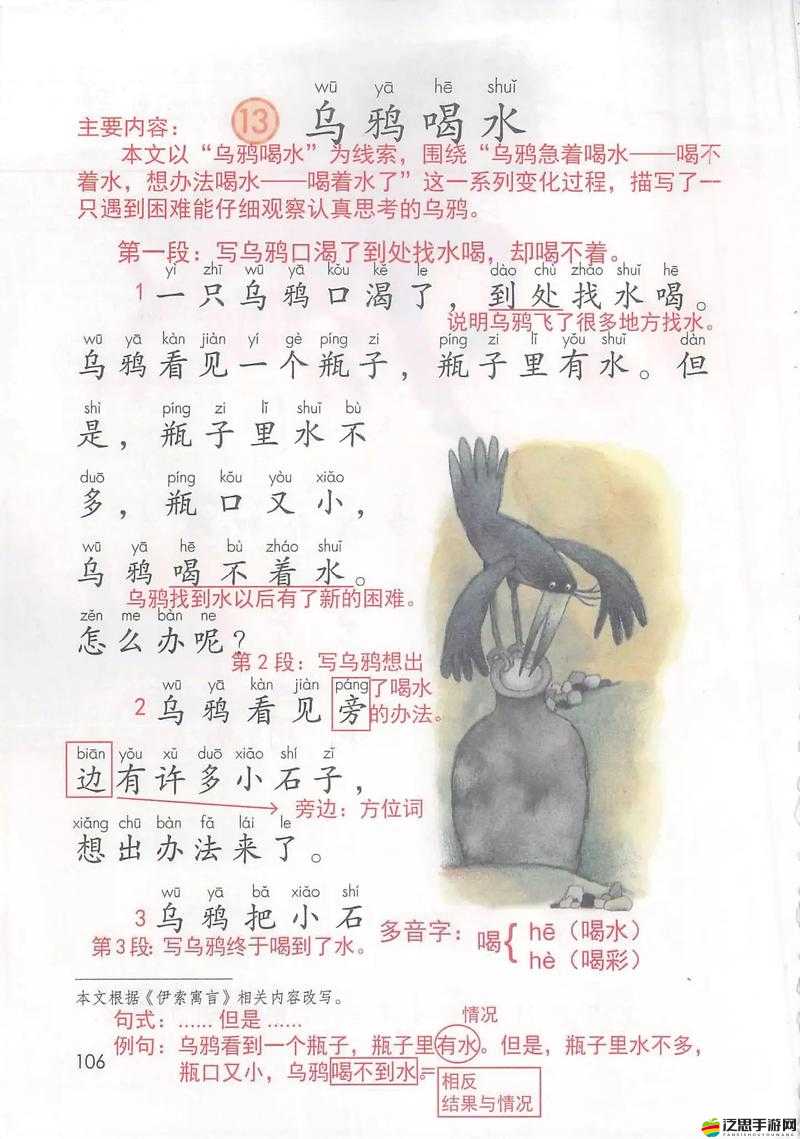 wū yā hē shuǐ
主要内容：
13 乌鸦喝水
本文以“乌鸦喝水”为线索，围绕“乌鸦急着喝水——喝不
着水，想办法喝水——喝着水了”这一系列变化过程，描写了一
只遇到困难能仔细观察认真思考的乌鸦。
第一段：写乌鸦口渴了到处找水喝，却喝不着。
yì zhī wū yā kǒu kě le dào chù zhǎo shuǐ hē
1 一只乌鸦口渴了，到处找水喝。
说明乌鸦飞了很多地方找水。
wū yā kàn jiàn yí gè píng zi píng zi lǐ yǒu shuǐ dàn
乌鸦看见一个瓶子，瓶子里有水。但
shì píng zi lǐ shuǐ bù
是，瓶子里水不
duō píng kǒu yòu xiǎo
多，瓶口又小，
wū yā hē bù zháo shuǐ
乌鸦喝不着水。
乌鸦找到水以后有了新的困难。
zěn me bàn ne
怎么办呢？
第2段：写乌鸦想出
了喝水
的办法。
wū yā kàn jiàn páng
2 乌鸦看见旁
biān yǒu xǔ duō xiǎo shí zǐ
边有许多小石子，
旁边：方位词
xiǎng chū bàn fǎ lái le
想出办法来了。
wū yā bǎ xiǎo shí
3 乌鸦把小石
第3段：写乌鸦终于喝到了水。
多音字：喝{ hē（喝水）
hè（喝彩）
本文根据《伊索寓言》相关内容改写。
句式：……但是……
情况
例句：乌鸦看到一个瓶子，瓶子里有水。但是，瓶子里水不多，
瓶口又小，乌鸦喝不到水。
相反
结果与情况
106
泛思手游网
FANSISHOUYOUWANG